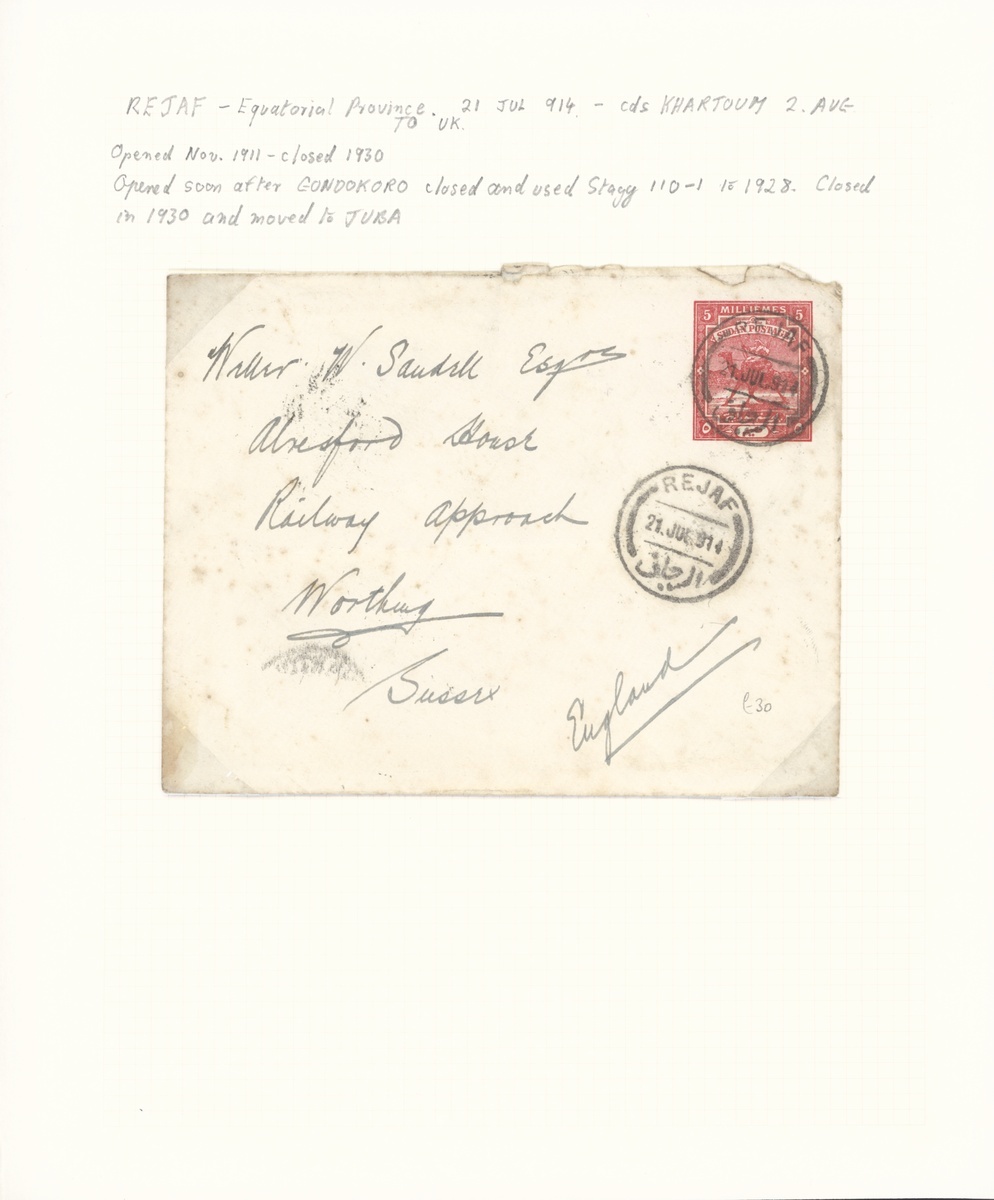 REJAF - Equatorial Province. 21 JUL 914. - cds KHARTOUM 2. AUG
TO UK.
Opened Nov. 1911 - closed 1930
Opened soon after GONDOKORO closed and used Stagg 110-1 to 1928. Closed
in 1930 and moved to JUBA
5 MILLIEMES 5
SUDAN POSTAGE
REJAF
21.JUL.914
الرجاف
W. Sandell Esqre
Alresford House
Railway Approach
Worthing
Sussex
England
REJAF
21.JUL.914
الرجاف
£30